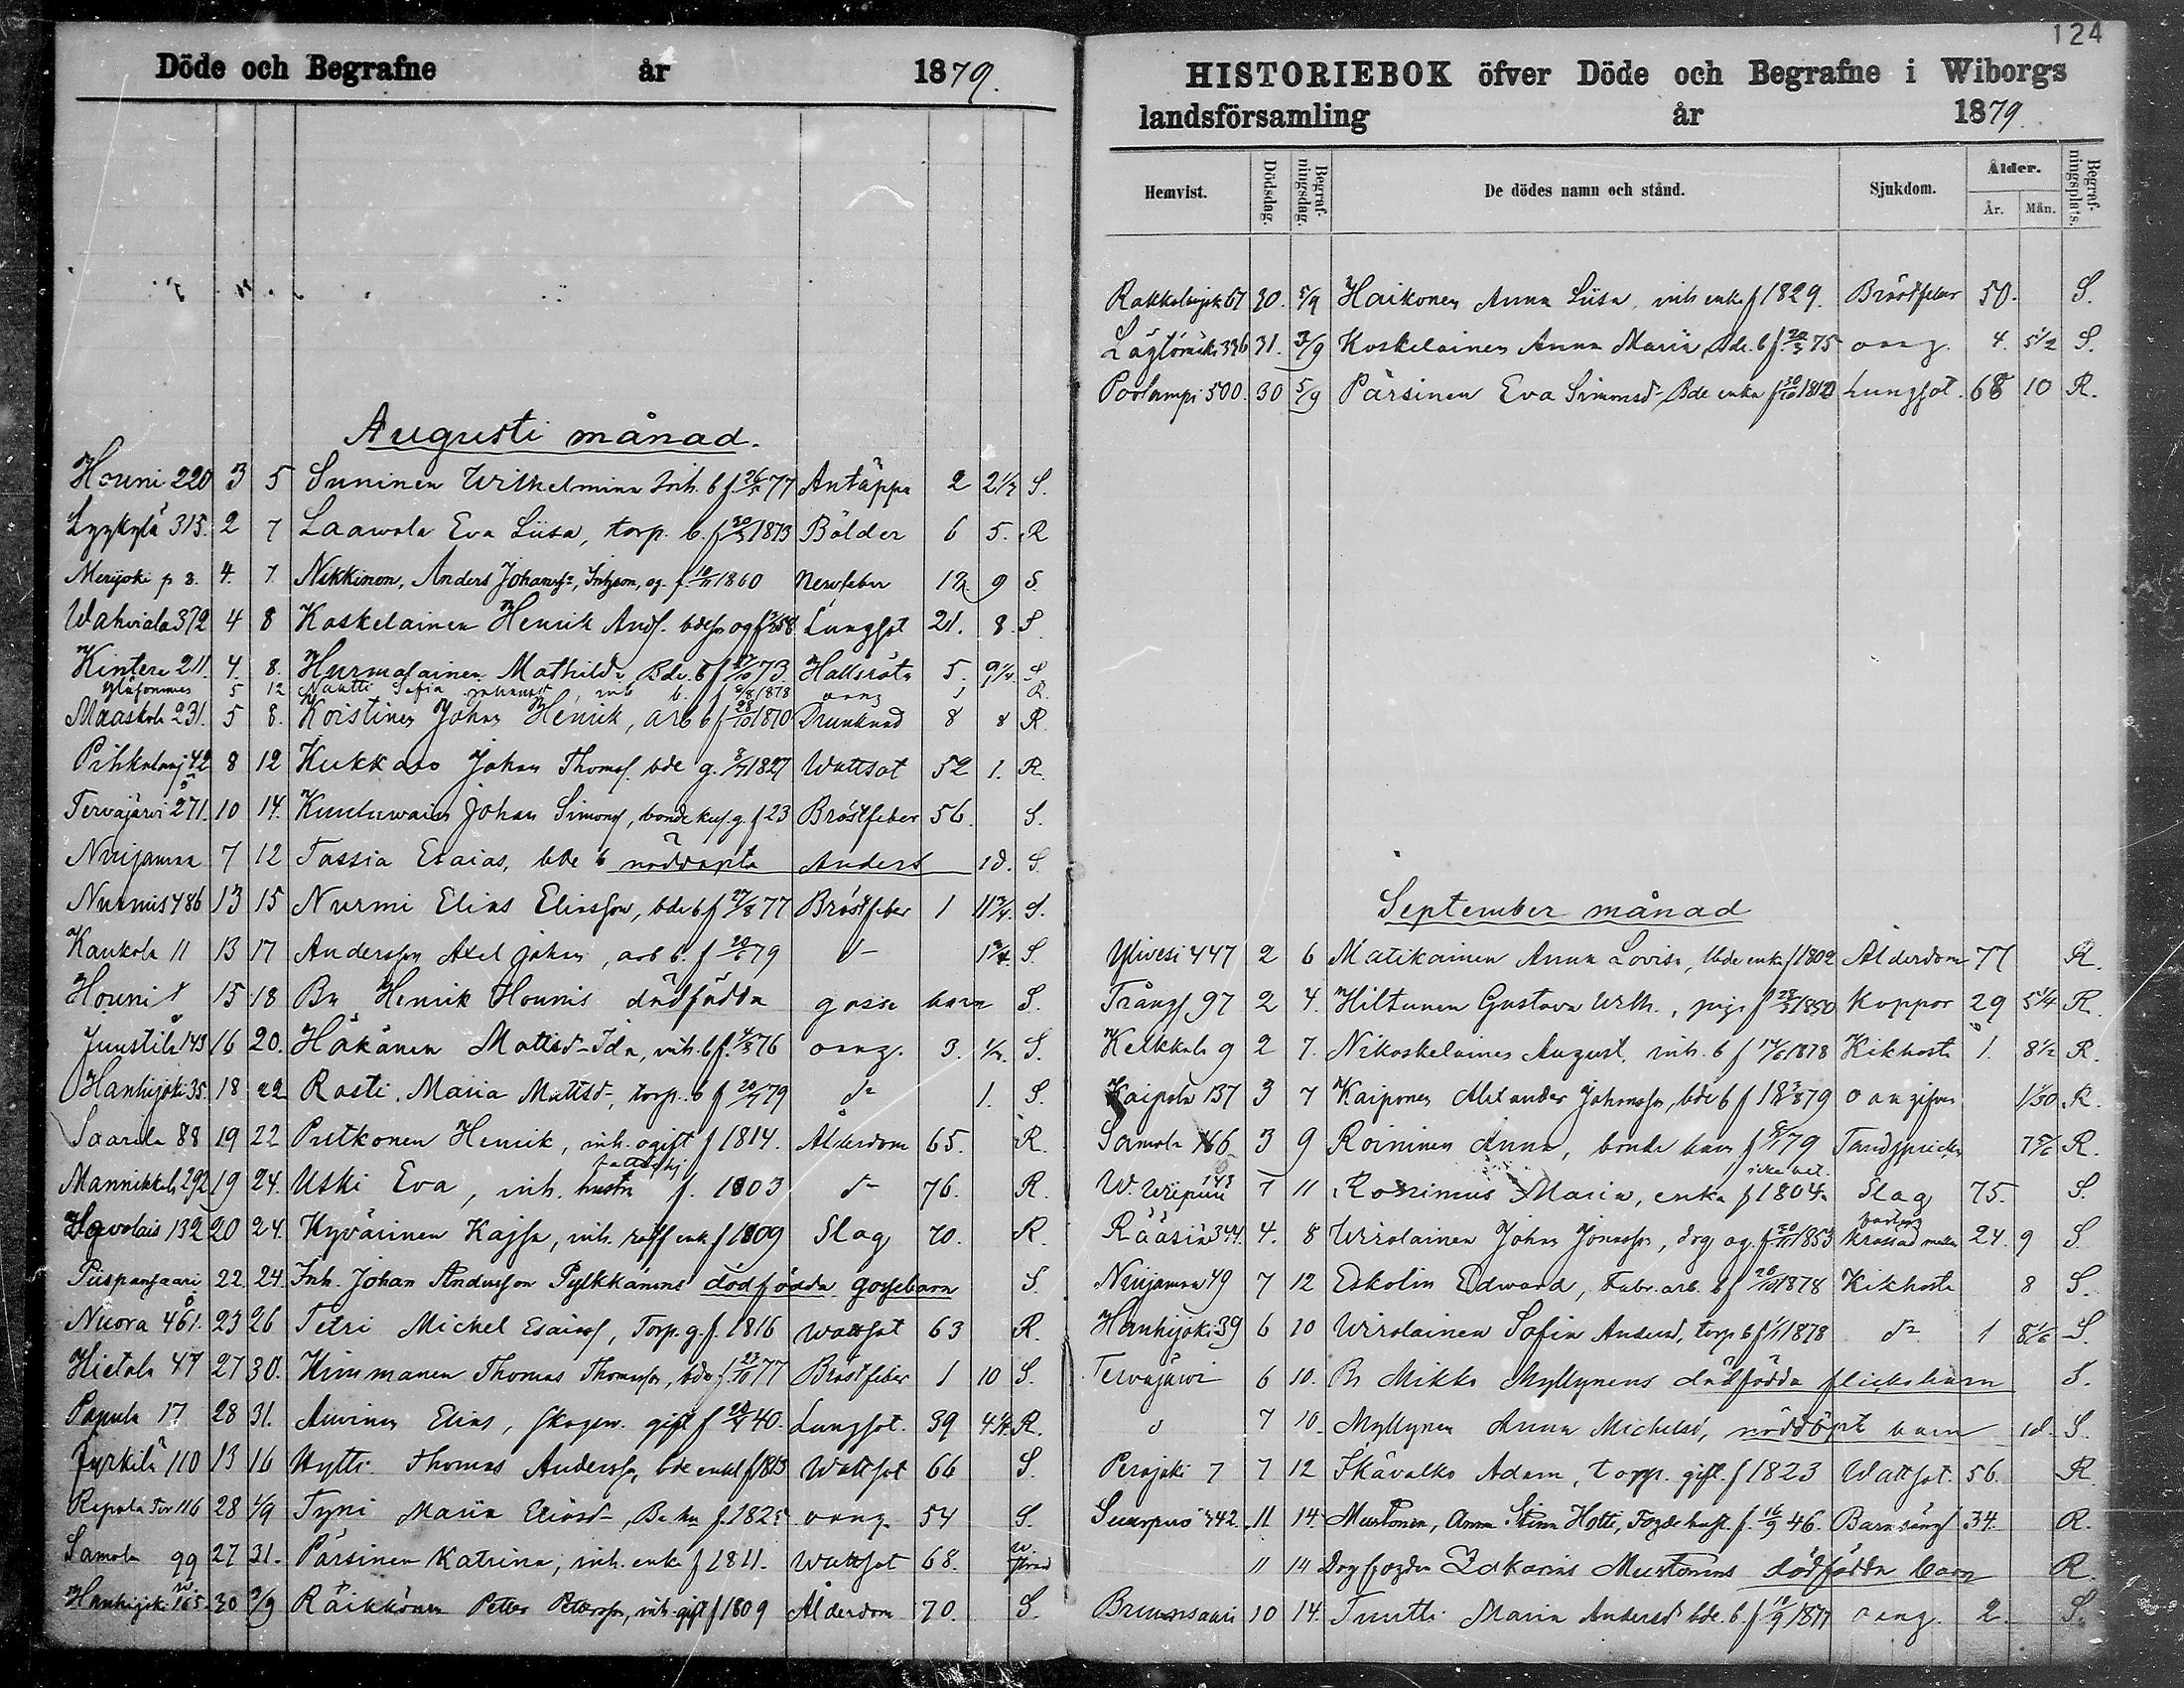 Döde och Begrafne år 1879.
Augusti månad.
Houni 220 3 5 Suninen Wilhelmina Inh. b f. 26/5 77 Antäppa 2 2 1/3 S.
Lyykylä 315. 2 7 Laawola Eva Liisa, torp. b. f 20/3 1873 Bölder 6 5. R
Merijoki p 8. 4. 7. Nikkinen, Anders Johanss:, Inhyson, og. f. 10/11 1860 Nervfeber 12. 9 S.
Wahviala 372 4 8 Koskelainen Henrik Andf. bdeson og f 58 Lungsot 21. 8. S.
Kintere 211. 4. 8. Hurmalainen Mathilda Bde. b f 27/10 73 Halsröta 5. 9 1/4 S.
5 12 Nautti Sofia Johansd, inh b. f 2/8 1878 oang 1 R.
Maaskola 231. 5 8. Koistinen Johan Henrik, arb b f 28/10 1870 Drunknad 8 8 R.
Pihkalanj 42 8 12 Kukkaso Johan Thomsf. bde g. 8/7 1827 Wattsot 52 1. R.
Tervajärvi 271. 10 14. Johan Simonsf, bonde g. f 23 Bröstfeber 56. S.
Nuijamaa 7 12 Tassia Esaias, bde b nöddöpta Anders 1 d. S.
Nurmis 486 13 15 Nurmi Elias Eliasson, bde b f 27/8 77 Bröstfeber 1 11 3/4. S.
Kaukola 11 13 17 Andersson Axel Johan, arb b. f 28/6 79 d- 1 3/4. S.
Houni 1 15 18 Bn Henrik Hounis dödfödda gosse barn S.
Juustila 143 16 20. Häkänen Mattsd- Ida, inh. b f. 4/8 76 oang. 3. 1/2. S.
Hanhijoki 35. 18 22 Rasti. Maria Mattsd-, torp. b f 20/7 79 d- 1. S.
Saarela 88 19 22 Putkonen Henrik, inh. ogift f 1814. Ålderdom 65. R.
Mannikkala 292 19 24. Uski Eva, inh. hustru fattighj f. 1803 d- 76. R.
Havolais 132 20 24. Hyvärinen Kajsa, inh. enk f 1809 Slag 70. R.
Piispansaari 22. 24. Inh. Johan Andersson Pylkkänens dödfödda gossebarn S.
Nuora 461. 23 26 Tetri Michel Esaiasf, Torp. g. f. 1816 Wattsot 63 R.
Hietala 47 27 30. Kimmanen Thomas Thomasson, bde f. 27/10 77 Bröstfeber 1 10 S.
Papula 17 28 31. Aivinen Elias, gift f 20/4 40. Lungsot. 39 4 1/4. R.
Jyrkilä 110 13 16 Hytti Thomas Anderss, bde enkl f 1813 Wattsot 66 S.
Repola 116 28 1/9 Tyni Maria Eliasd-, B. hu f. 1825 oang. 54 S.
Samola 99 27 31. Pärsinen Katrina, inh. enka f 1811. Wattsot 68.
Hanhijoki 165. 30 3/9 Räikkönen Petter Petersson, inh. gift f 1809 Ålderdom 70. S.
124
HISTORIEBOK öfver Döde och Begrafne i Wiborgs
landsförsamling år 1879.
Hemvist. Dödsdag. Begrafningsdag. De dödes namn och stånd. Sjukdom. Ålder. År. Mån. Begrafningsplats.
Rakkolanjok 67 30. 5/9 Haikonen Anna Liisa inh enka f 1829. Bröstfeber 50. S.
336 31. 3/9 Koskelainen Anna Maria, Bde. b f. 20/3 75 oang. 4. 5 1/2 S.
Poolampi 500. 30 5/9 Pärsinen Eva Simonsd- Bde enka f 30/10 1810 Lungsot. 68 10 R.
September månad
Ylivesi 447 2 6 Matikainen Anna Lovisa, bde enka f 1802 Ålderdom 77 R.
Trångs 97 2 4. Hiltunen Gustava Wilh., piga f 28/3 1850 Koppor 29 5 1/4 R.
Kelkkala 9 2 7. Nikoskelainen August, inh. b f 14/6 1878 Kikhosta 1. 8 1/2 R.
Kaipola 137 3 7 Kaiponen Alexander Johansson, bde b f 18 3/8 79 oangifven 1/30 R.
Samola 166 3 9 Roininen Anna, bonde barn f 8/1 79 Tandsprickn 7 5/6 R.
W. Wiipuri 143 7 11 Rossinius Maria, enka f 1804 Slag 75. S.
Rääsiä 344. 4. 8 Wirolainen Johan Jonasson, drg og. f 20/11 1853 krossad mellan 24. 9 S.
Nuijamaa 49 7 12 Eskolin Edward, Fabr. arb. b f 26/12 1878 Kikhosta 8 S.
Hanhijoki 39 6 10 Wirolainen Sofia Andersd, torp b f 1/1 1878 d- 1 8 1/6 S.
Tervajärvi 6 10. Bn Mikko Myllynens dödfödda flickebarn S.
d 7 10. Myllynen Anna Michelsd, nöddöpt barn 1 d. S.
Perojoki 7 7 12 Skävalko Adam, torp. gift. f 1823 Wattsot. 56. R
Suurpero 342. 11 14. Mustonen, Anna Stina Hotti, Fogde hust. f. 16/9 46. Barnsäng 34. R.
11 14 Drgfogden Zakarias Mustonens dödfödda barn R.
Brunnsaari 10 14. Tuutti Maria Andersd bde. b. f 10/9 1877 oang. 2. S.